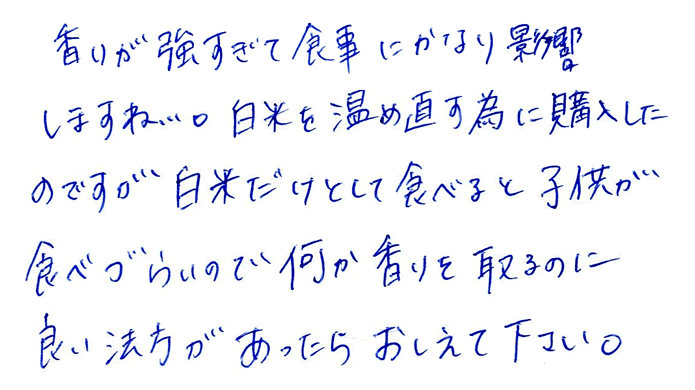 香りが強すぎて食事にかなり影響
しますね…。白米を温め直す為に購入した
のですが白米だけとして食べると子供が
食べづらいので何か香りを取るのに
良い法方があったらおしえて下さい。